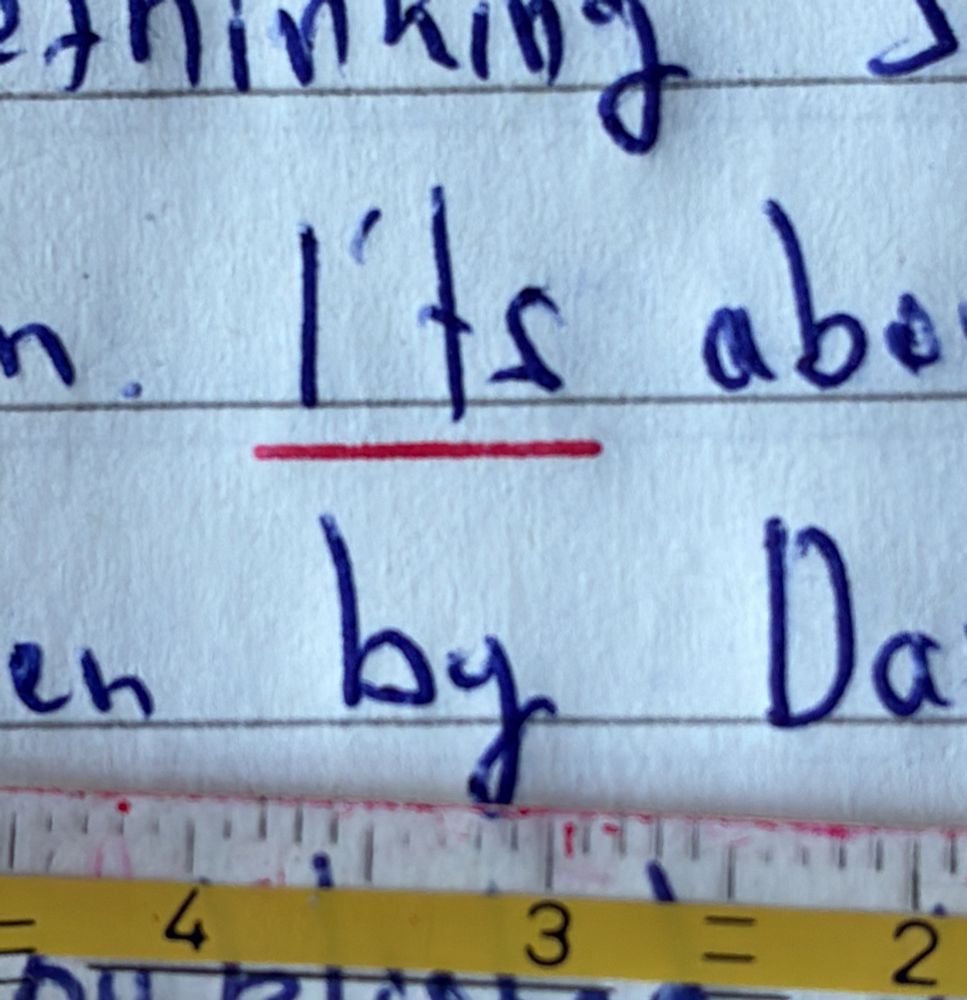 ethinking s
n. I'ts abo
en by Da
= 4 3 = 2